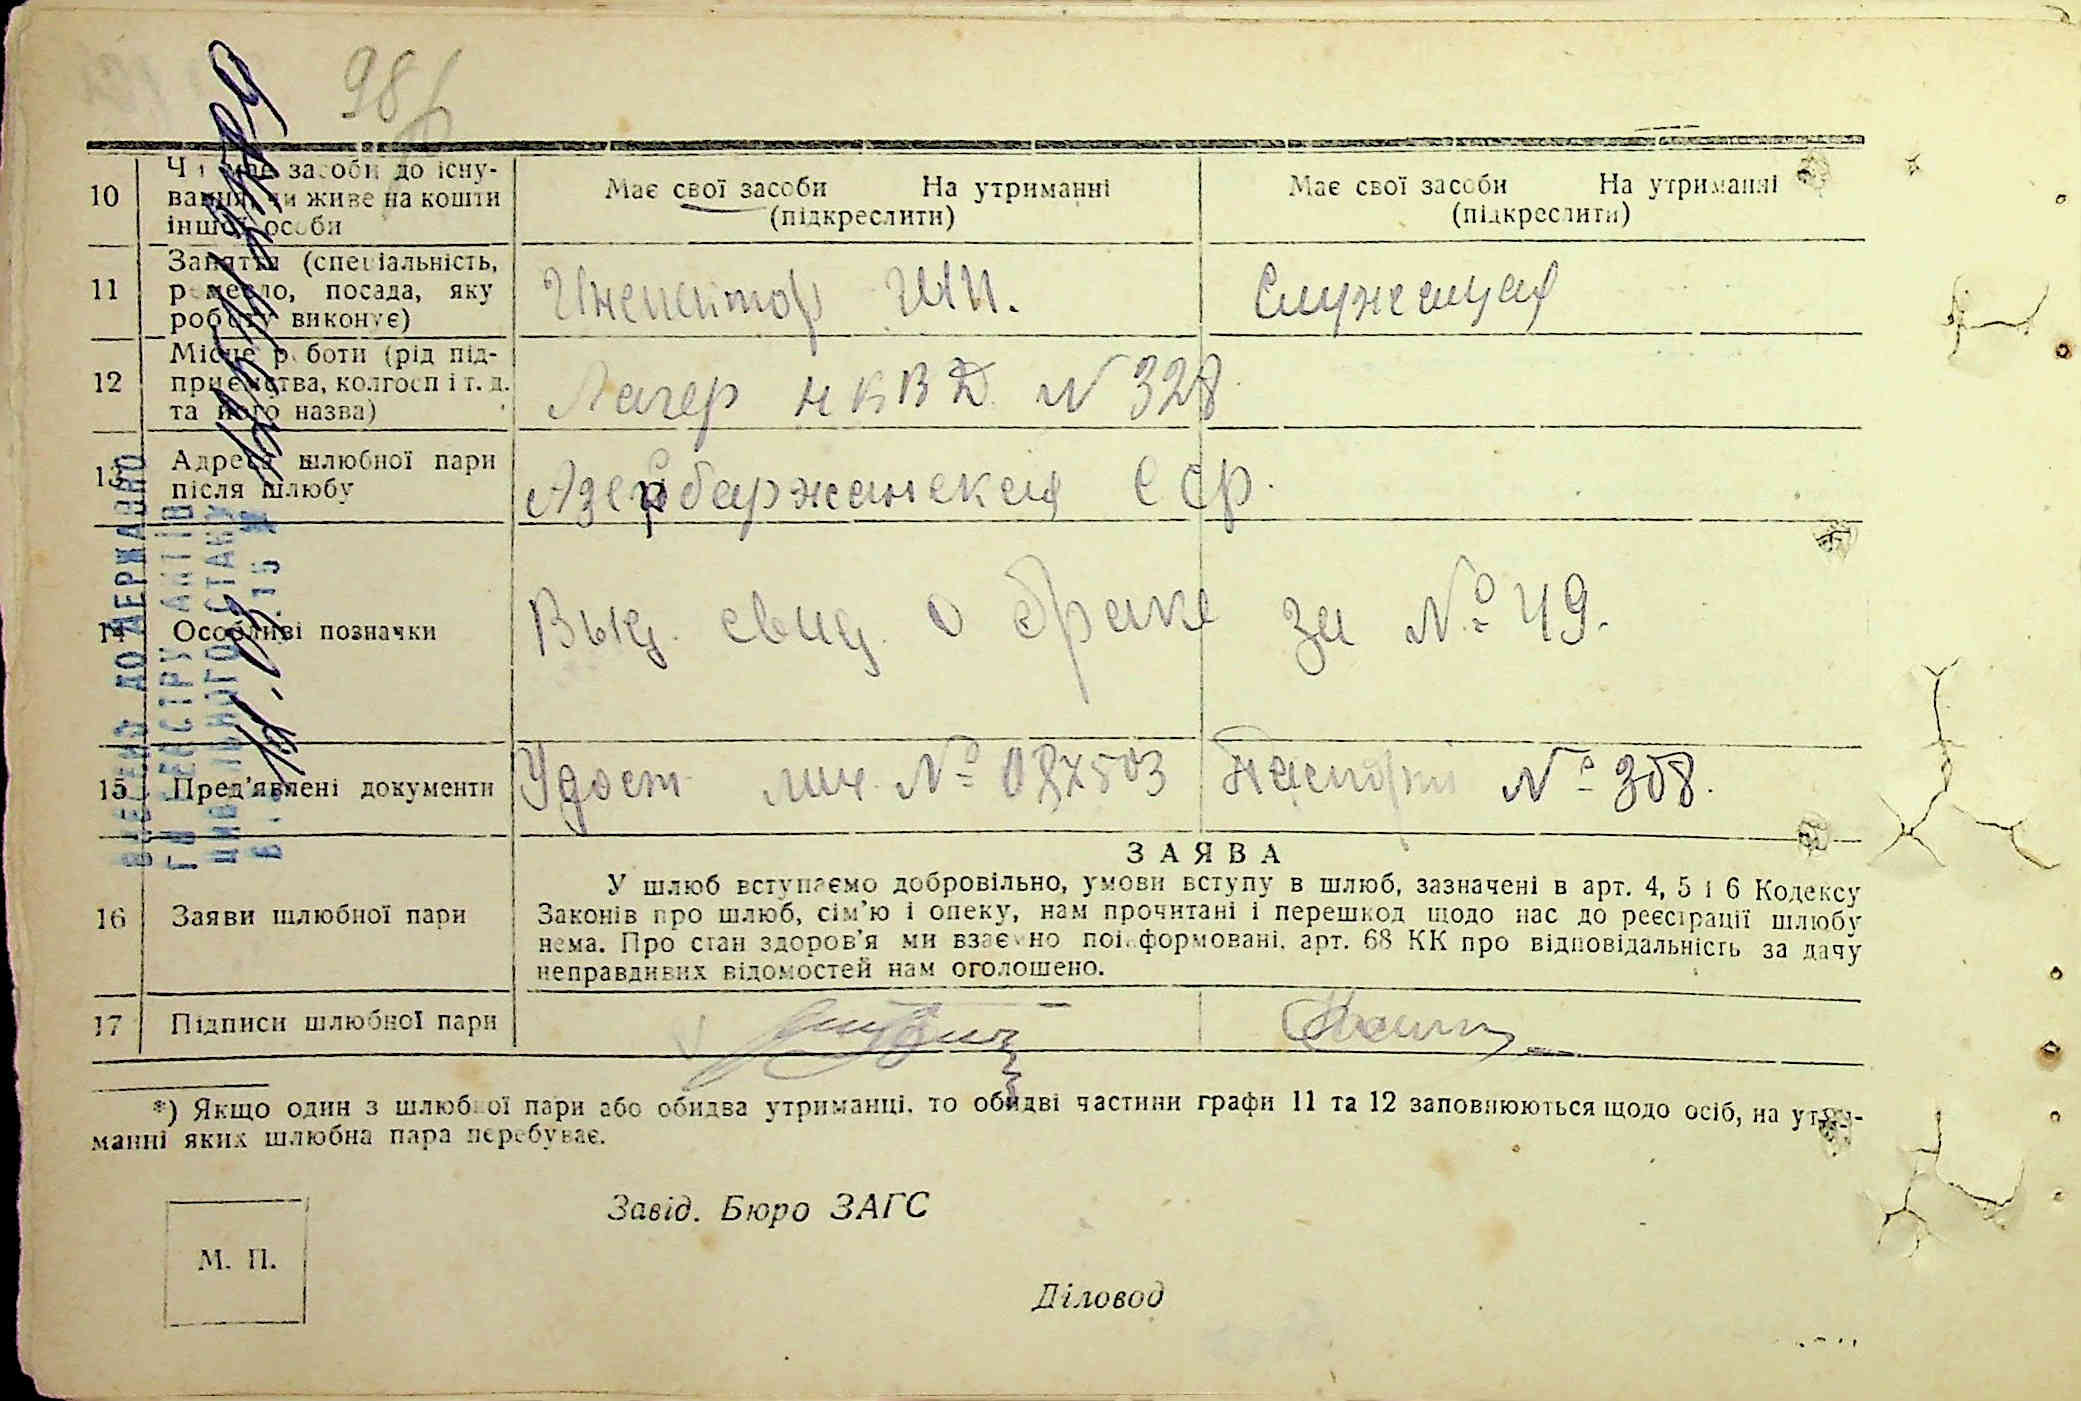 98
10 Чи має засоби до існування, чи живе на кошти іншої особи
Має свої засоби На утриманні
(підкреслити)
Має свої засоби На утриманні
(підкреслити)
11 Заняття (спеціальність, ремесло, посада, яку роботу виконує)
Служащая
12 Місце роботи (рід підприємства, колгосп і т. д. та його назва)
Лагер НКВД. № 328
13 Адреса шлюбної пари після шлюбу
Азербаржанская ССР.
14 Особливі позначки
Выд. свид. о браке за № 49.
15 Пред'явлені документи
Удост лич. №
Паспорт № 308.
16 Заяви шлюбної пари
ЗАЯВА
У шлюб вступаємо добровільно, умови вступу в шлюб, зазначені в арт. 4, 5 і 6 Кодексу
Законів про шлюб, сім'ю і опеку, нам прочитані і перешкод щодо нас до реєстрації шлюбу
нема. Про стан здоров'я ми взаємно поінформовані, арт. 68 КК про відповідальність за дачу
неправдивих відомостей нам оголошено.
17 Підписи шлюбної пари
*) Якщо один з шлюбної пари або обидва утриманці, то обидві частини графи 11 та 12 заповнюються щодо осіб, на утри-
манні яких шлюбна пара перебуває.
Завід. Бюро ЗАГС
М. П.
Діловод
ВНЕСЕНО ДО ДЕРЖАВНО
ГО РЕЄСТРУ АКТІВ
ЦИВІЛЬНОГО СТАНУ